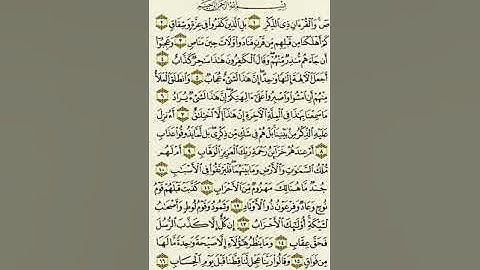 بِسْمِ ٱللَّهِ ٱلرَّحْمَٰنِ ٱلرَّحِيمِ
صٓ وَٱلْقُرْءَانِ ذِى ٱلذِّكْرِ ١ بَلِ ٱلَّذِينَ كَفَرُوا۟ فِى عِزَّةٍ وَشِقَاقٍ ٢
كَمْ أَهْلَكْنَا مِن قَبْلِهِم مِّن قَرْنٍ فَنَادَوا۟ وَّلَاتَ حِينَ مَنَاصٍ ٣ وَعَجِبُوٓا۟
أَن جَآءَهُم مُّنذِرٌ مِّنْهُمْ وَقَالَ ٱلْكَٰفِرُونَ هَٰذَا سَٰحِرٌ كَذَّابٌ ٤
أَجَعَلَ ٱلْءَالِهَةَ إِلَٰهًا وَٰحِدًا إِنَّ هَٰذَا لَشَىْءٌ عُجَابٌ ٥ وَٱنطَلَقَ ٱلْمَلَأُ
مِنْهُمْ أَنِ ٱمْشُوا۟ وَٱصْبِرُوا۟ عَلَىٰٓ ءَالِهَتِكُمْ إِنَّ هَٰذَا لَشَىْءٌ يُرَادُ
٦ مَا سَمِعْنَا بِهَٰذَا فِى ٱلْمِلَّةِ ٱلْءَاخِرَةِ إِنْ هَٰذَآ إِلَّا ٱخْتِلَٰقٌ ٧ أَءُنزِلَ
عَلَيْهِ ٱلذِّكْرُ مِنۢ بَيْنِنَا بَلْ هُمْ فِى شَكٍّ مِّن ذِكْرِى بَل لَّمَّا يَذُوقُوا۟ عَذَابِ
٨ أَمْ عِندَهُمْ خَزَآئِنُ رَحْمَةِ رَبِّكَ ٱلْعَزِيزِ ٱلْوَهَّابِ ٩ أَمْ لَهُم
مُّلْكُ ٱلسَّمَٰوَٰتِ وَٱلْأَرْضِ وَمَا بَيْنَهُمَا فَلْيَرْتَقُوا۟ فِى ٱلْأَسْبَٰبِ ١٠
جُندٌ مَّا هُنَالِكَ مَهْزُومٌ مِّنَ ٱلْأَحْزَابِ ١١ كَذَّبَتْ قَبْلَهُمْ قَوْمُ
نُوحٍ وَعَادٌ وَفِرْعَوْنُ ذُو ٱلْأَوْتَادِ ١٢ وَثَمُودُ وَقَوْمُ لُوطٍ وَأَصْحَٰبُ
لْـَٔيْكَةِ أُو۟لَٰٓئِكَ ٱلْأَحْزَابُ ١٣ إِن كُلٌّ إِلَّا كَذَّبَ ٱلرُّسُلَ
فَحَقَّ عِقَابِ ١٤ وَمَا يَنظُرُ هَٰٓؤُلَآءِ إِلَّا صَيْحَةً وَٰحِدَةً مَّا لَهَا
مِن فَوَاقٍ ١٥ وَقَالُوا۟ رَبَّنَا عَجِّل لَّنَا قِطَّنَا قَبْلَ يَوْمِ ٱلْحِسَابِ ١٦